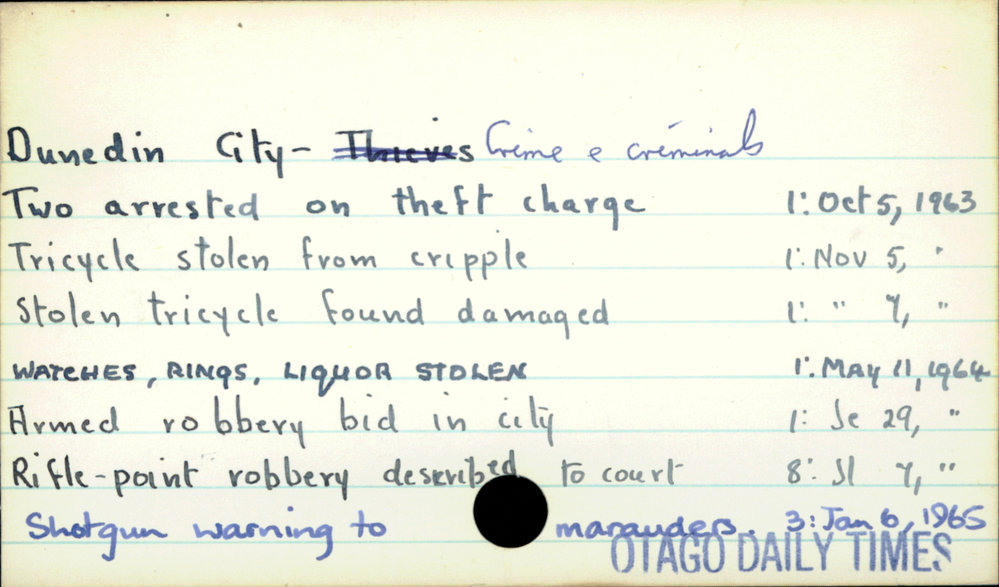 Dunedin City - Thieves Crime & criminals
Two arrested on theft charge 1: Oct 5, 1963
Tricycle stolen from cripple 1: Nov 5, "
Stolen tricycle found damaged 1: " 7, "
WATCHES, RINGS, LIQUOR STOLEN 1: MAY 11, 1964
Armed robbery bid in city 1: Je 29, "
Rifle-point robbery described to court 8: Jl 7, "
Shotgun warning to marauders. 3: Jan 6, 1965
OTAGO DAILY TIMES